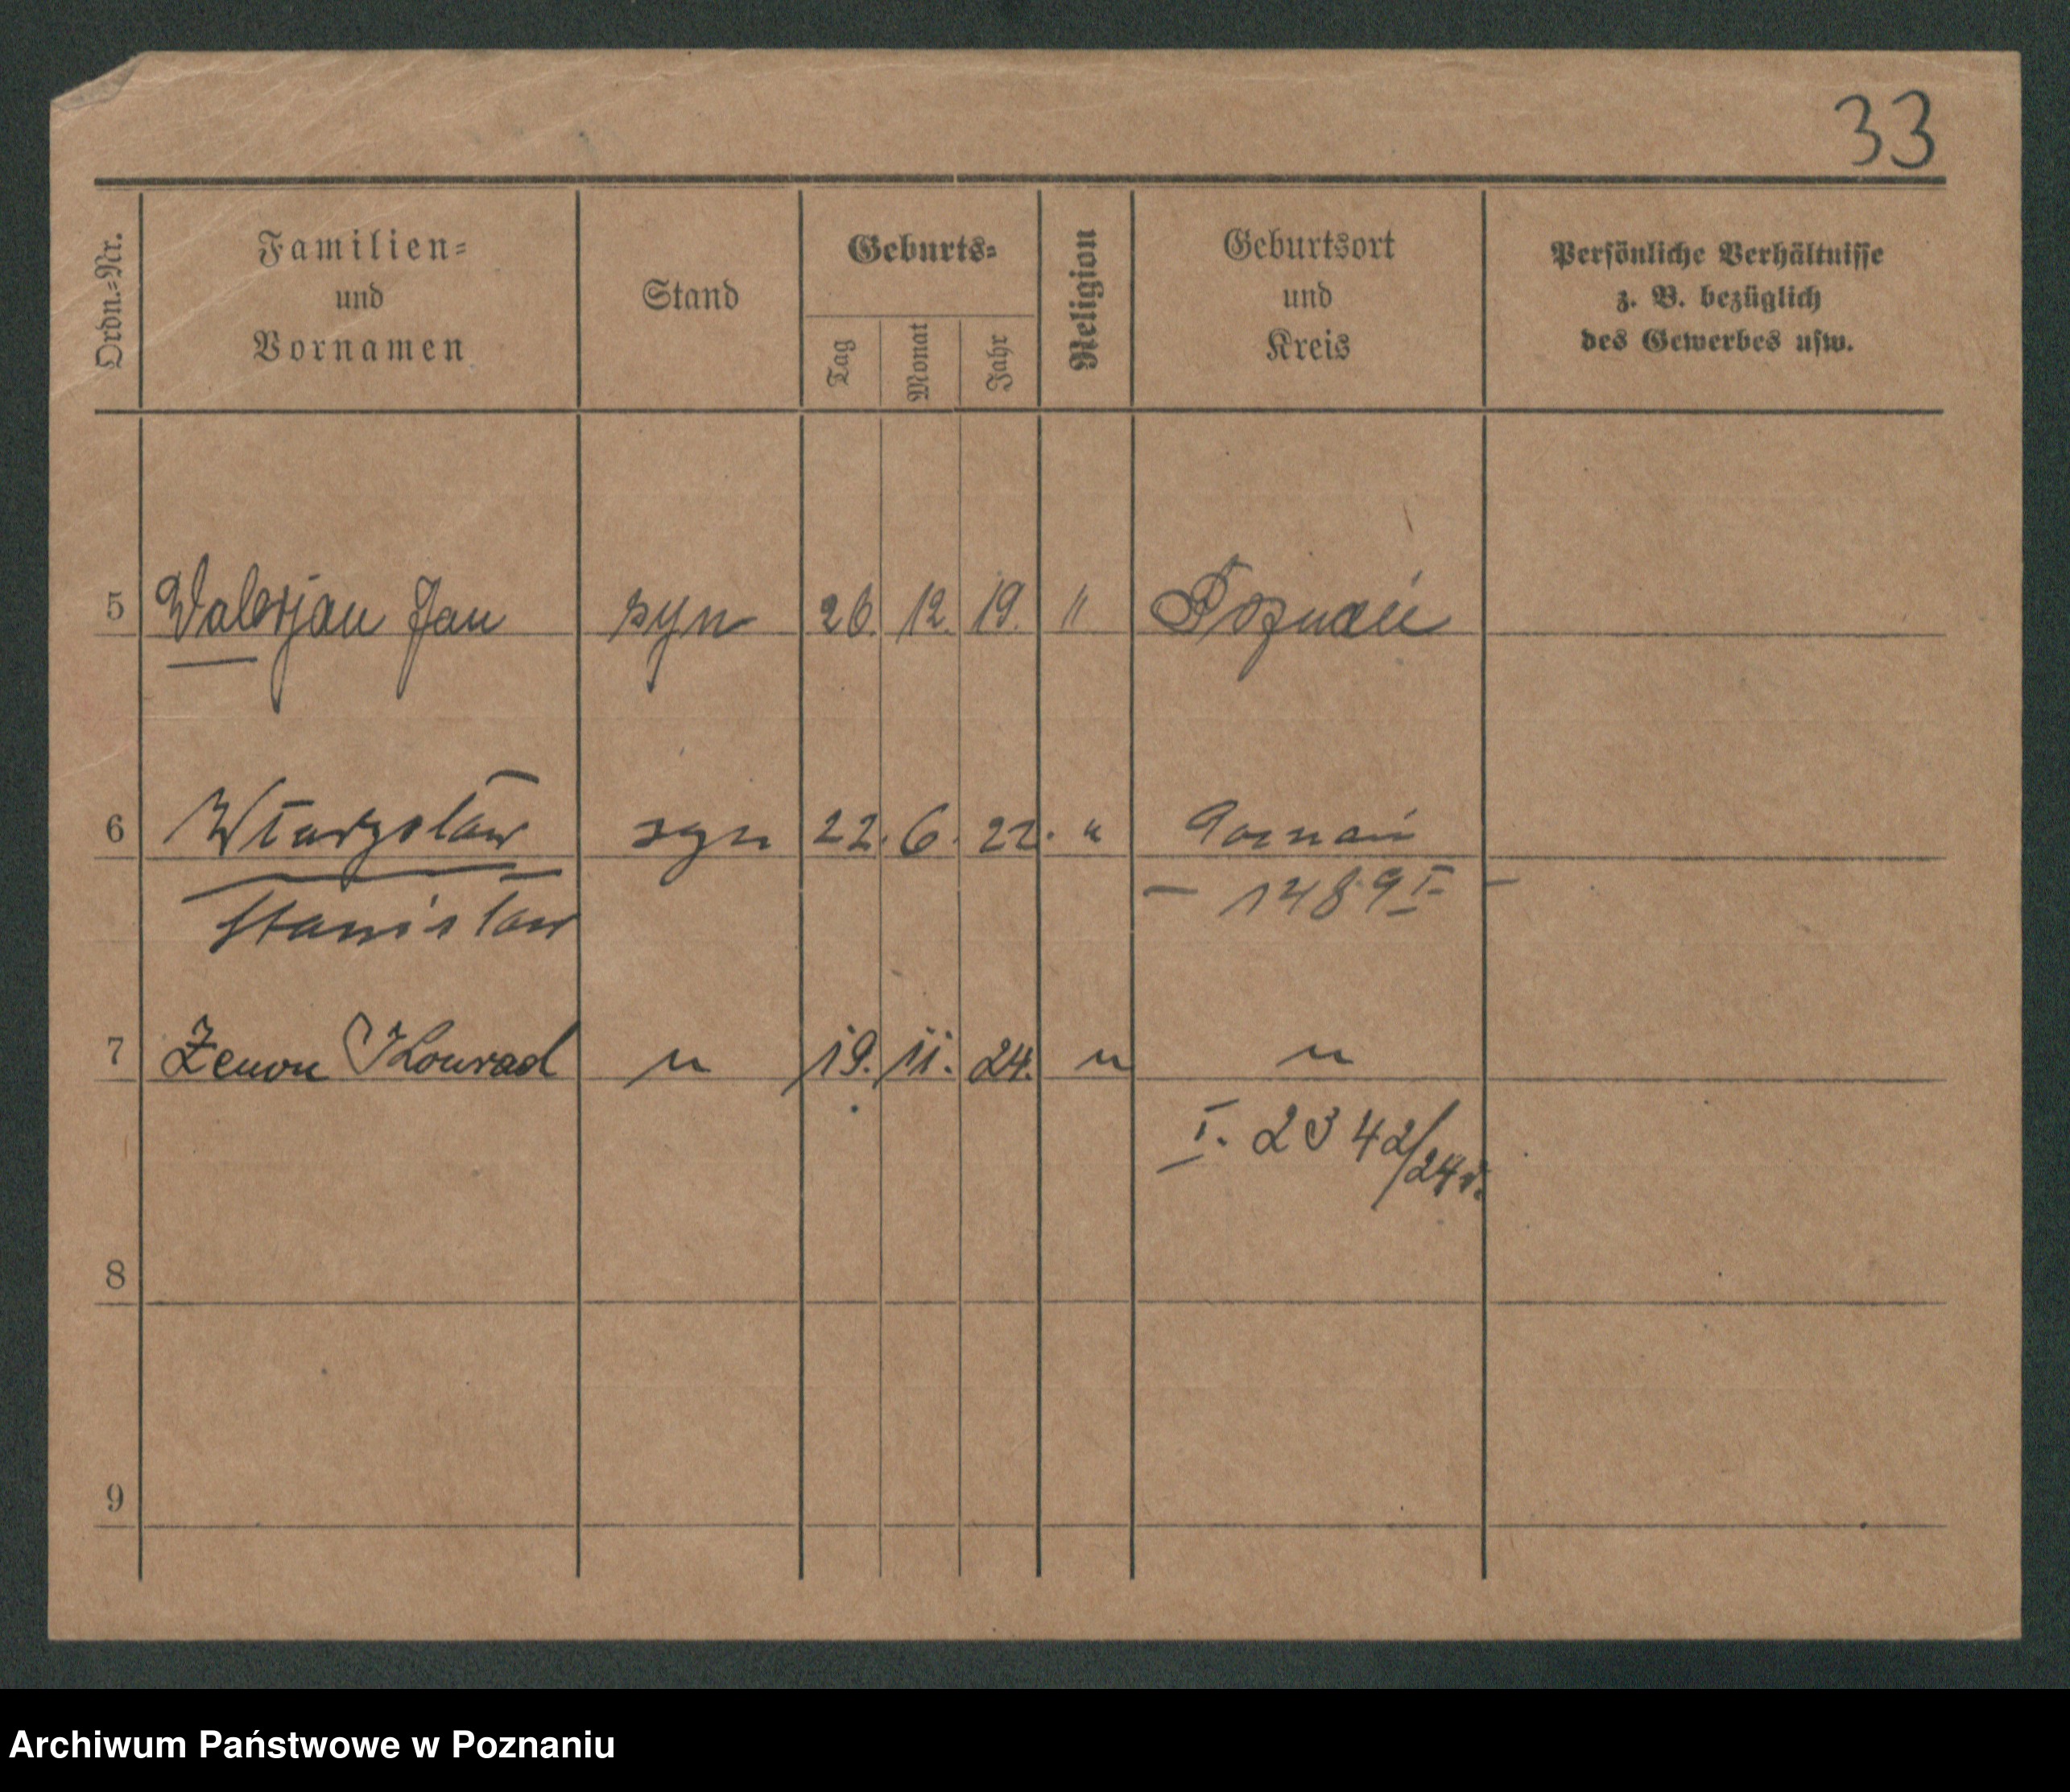 33
Ordn.=Nr.
Familien=
und
Vornamen
Stand
Geburts=
Tag
Monat
Jahr
Religion
Geburtsort
und
Kreis
Persönliche Verhältnisse
z. B. bezüglich
des Gewerbes usw.
5 Walerjan Jan syn 26. 12. 19. " Poznań
6 syn 22. 6. 22. " Poznań
Stanisław — 1489 I —
7 Zenon Konrad " 19. 11. 24. " "
I. 2342/24 r.
8
9
Archiwum Państwowe w Poznaniu